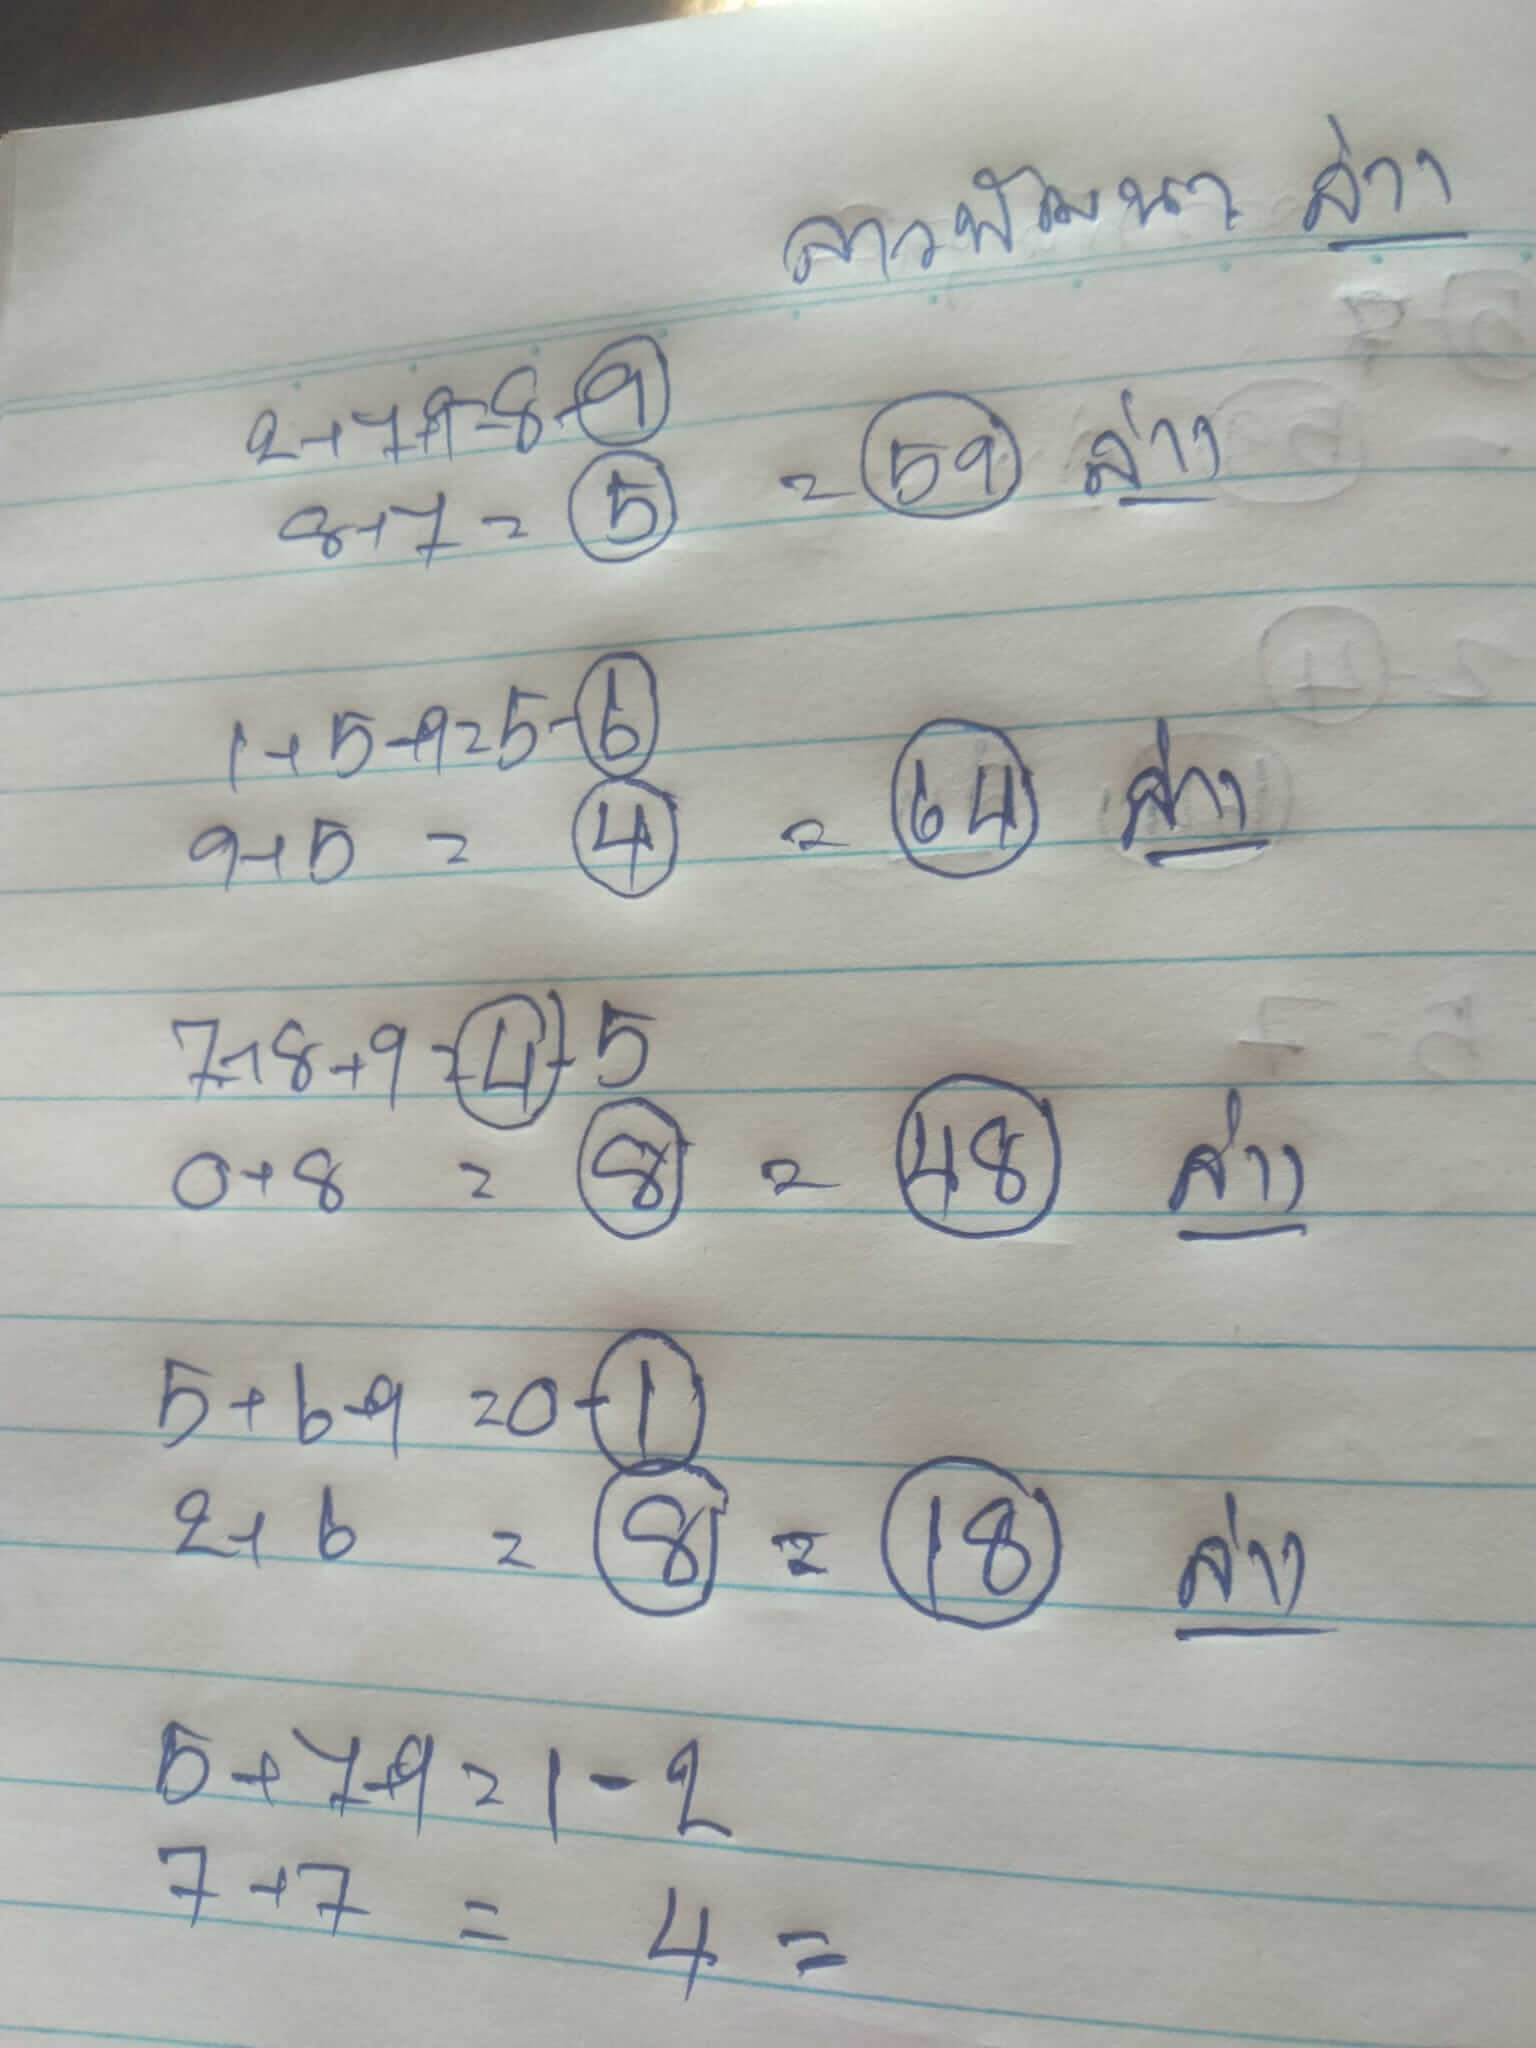 ลาวพัฒนา ล่าง
2+7+9=8-9
8+7=5 =59 ล่าง
1+5+9=5-6
9+5=4 =64 ล่าง
7+8+9=4-5
0+8=8 =48 ล่าง
5+6+9=0-1
2+6=8 =18 ล่าง
5+7+9=1-2
7+7=4=